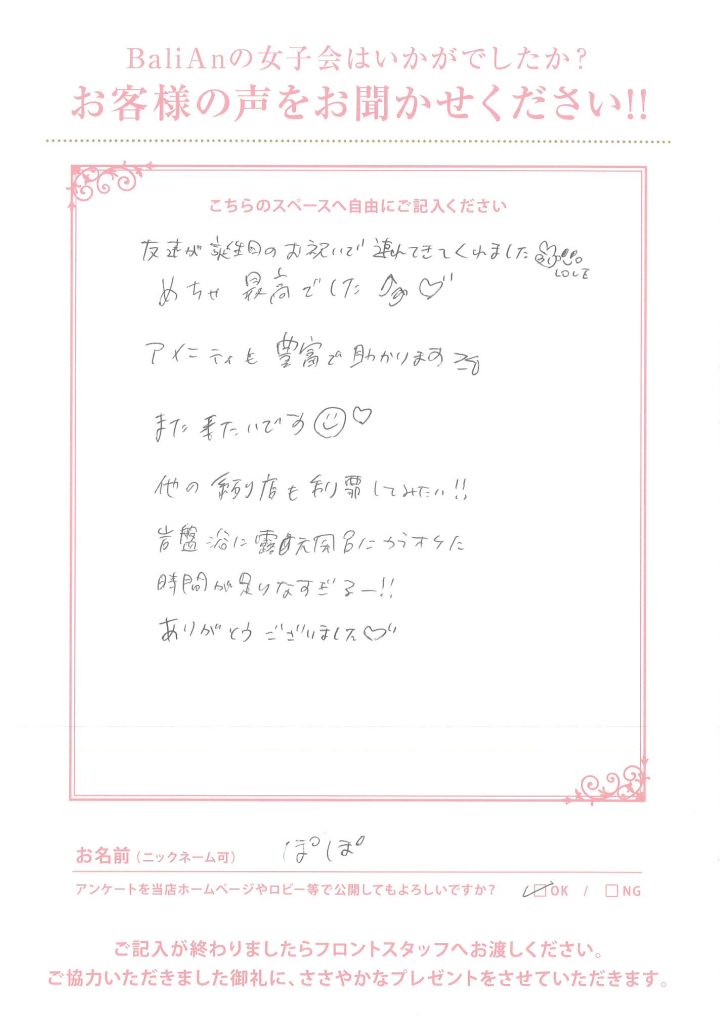 BaliAnの女子会はいかがでしたか?
お客様の声をお聞かせください!!
こちらのスペースへ自由にご記入ください
友達が誕生日のお祝いで連れてきてくれました
LOVE
めちゃ最高でした♡
アメニティも豊富で助かります
また来たいです♡
他の系列店も利用してみたい!!
岩盤浴に露天風呂にカラオケに
時間が足りなすぎるー!!
ありがとうございました♡
お名前(ニックネーム可) ぽぽ
アンケートを当店ホームページやロビー等で公開してもよろしいですか? ☑OK / □NG
ご記入が終わりましたらフロントスタッフへお渡しください。
ご協力いただきました御礼に、ささやかなプレゼントをさせていただきます。